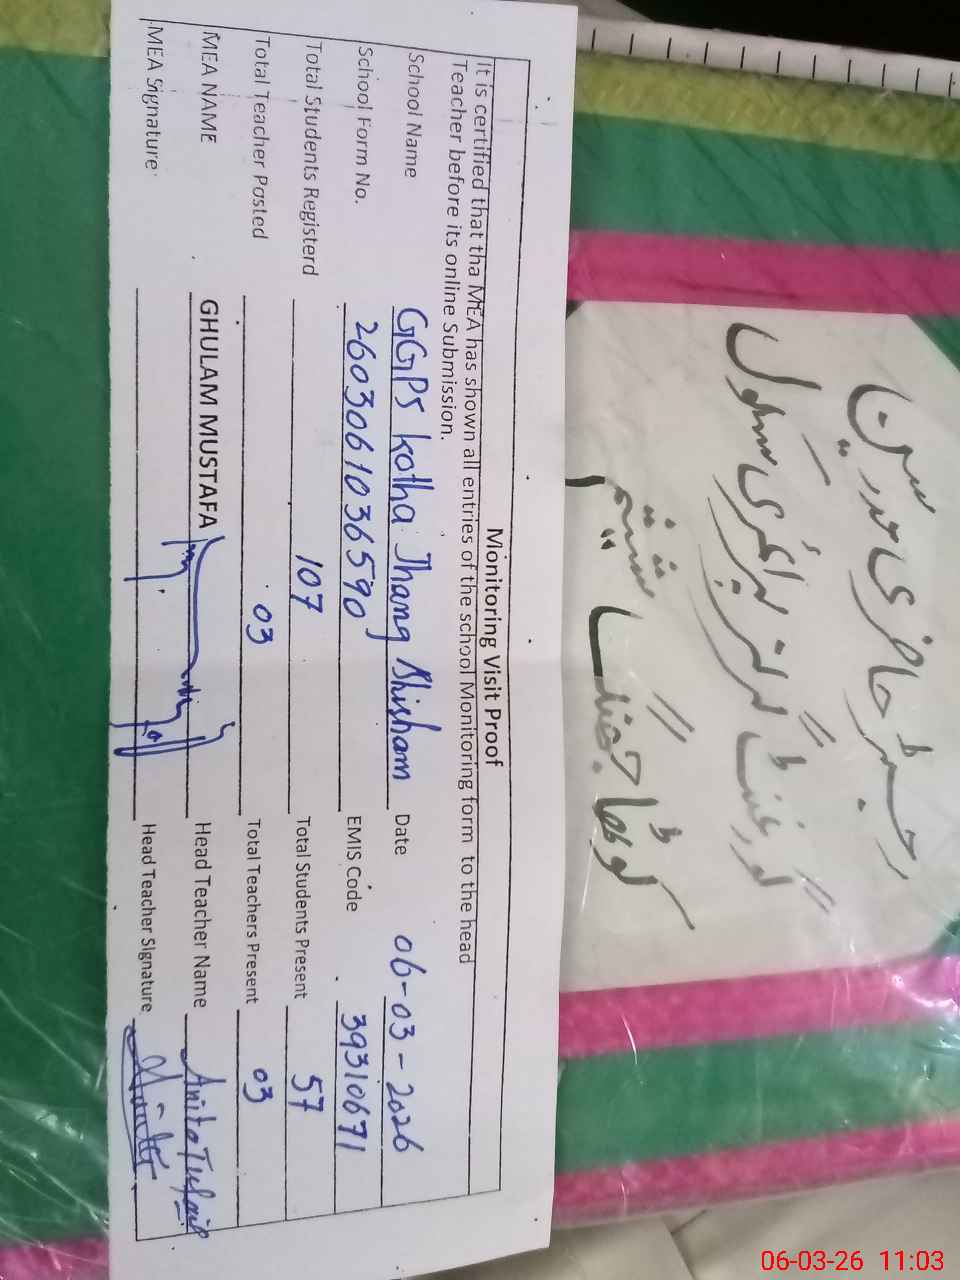 Monitoring Visit Proof
It is certified that tha MEA has shown all entries of the school Monitoring form to the head
Teacher before its online Submission.
School Name GGPS Kotha Jhang Bhisham Date 06-03-2026
School Form No. 2603061036590 EMIS Code 39310671
Total Students Registerd 107 Total Students Present 57
Total Teacher Posted 03 Total Teachers Present 03
MEA NAME GHULAM MUSTAFA Head Teacher Name Anita Tufail
MEA Signature Head Teacher Signature
رجسٹر حاضری مدرسین
گورنمنٹ گرلز پرائمری سکول
کوٹھا جھنگ
06-03-26 11:03